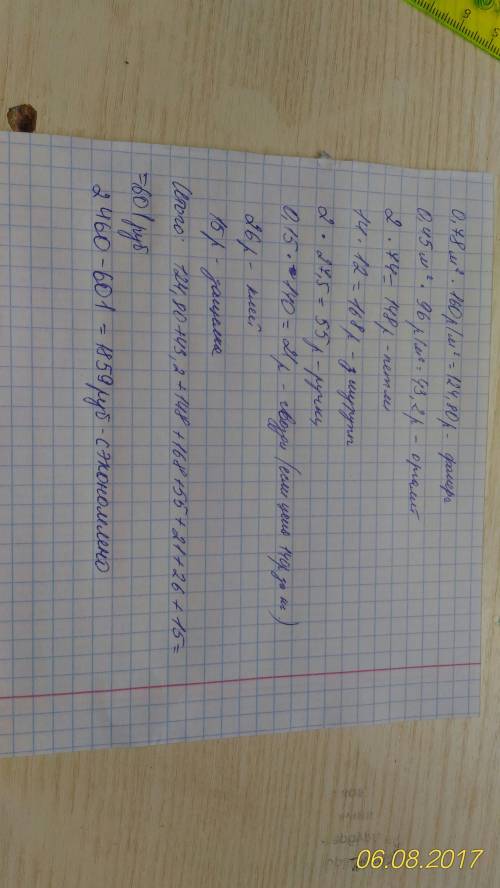 0,78 м² · 160 р/м² = 124,80 р - фанера
0,45 м² · 96 р/м² = 43,2 р - оргалит
2 · 74 = 148 р - петли
14 · 12 = 168 р - шурупы
2 · 27,5 = 55 р - ручки
0,15 · 140 = 21 р - гвозди (если цена 140 р за кг)
26 р - клей
15 р - защелка
Итого: 124,80 + 43,2 + 148 + 168 + 55 + 21 + 26 + 15 =
= 601 руб
2460 - 601 = 1859 руб - сэкономлено
06.08.2017